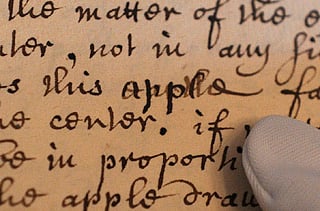 the matter of the
nter, not in any
s this apple fa
he center. if
be in proporti
he apple draw